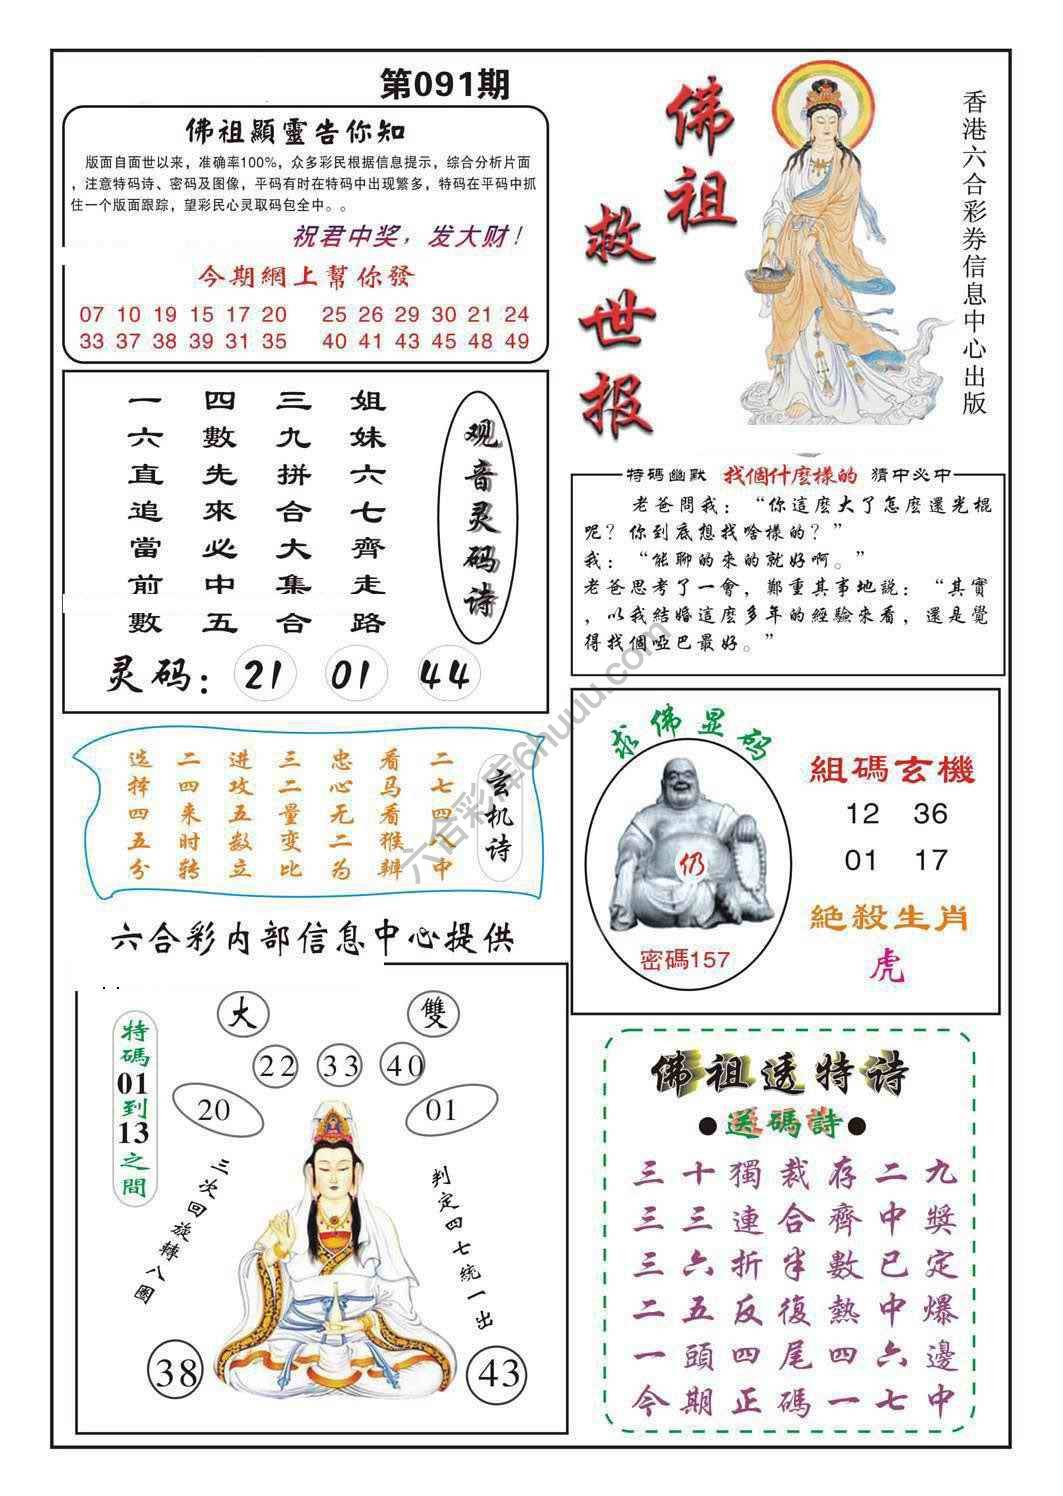 第091期
佛祖顯靈告你知
版面自面世以来，准确率100%，众多彩民根据信息提示，综合分析片面
，注意特码诗、密码及图像，平码有时在特码中出现繁多，特码在平码中抓
住一个版面跟踪，望彩民心灵取码包全中。。
祝君中奖，发大财！
今期網上幫你發
07 10 19 15 17 20 25 26 29 30 21 24
33 37 38 39 31 35 40 41 43 45 48 49
佛祖
救世报
香港六合彩券信息中心出版
观音灵码诗
姐妹六七齊走路
三九拼合大集合
四數先來必中五
一六直追當前數
灵码：21 01 44
特碼幽默 找個什麼樣的 猜中必中
老爸問我：“你這麼大了怎麼還光棍
呢？你到底想找啥樣的？”
我：“能聊的來的就好啊。”
老爸思考了一會，鄭重其事地説：“其實
，以我結婚這麼多年的經驗來看，還是覺
得找個啞巴最好。”
玄机诗
二七四八中
看马看猴辨
忠心无二为
三二量变比
进攻五数立
二四来时转
选择四五分
求佛显码
仍
密碼157
組碼玄機
12 36
01 17
絕殺生肖
虎
六合彩内部信息中心提供
大 雙
22 33 40
20 01
特碼01到13之間
三次回旋轉八圈
判定四七統一出
38 43
佛祖透特诗
●送碼詩●
三十獨裁存二九
三三連合齊中獎
三六折半數已定
二五反復熱中爆
一頭四尾四六邊
今期正碼一七中
六合彩库6huuu.com